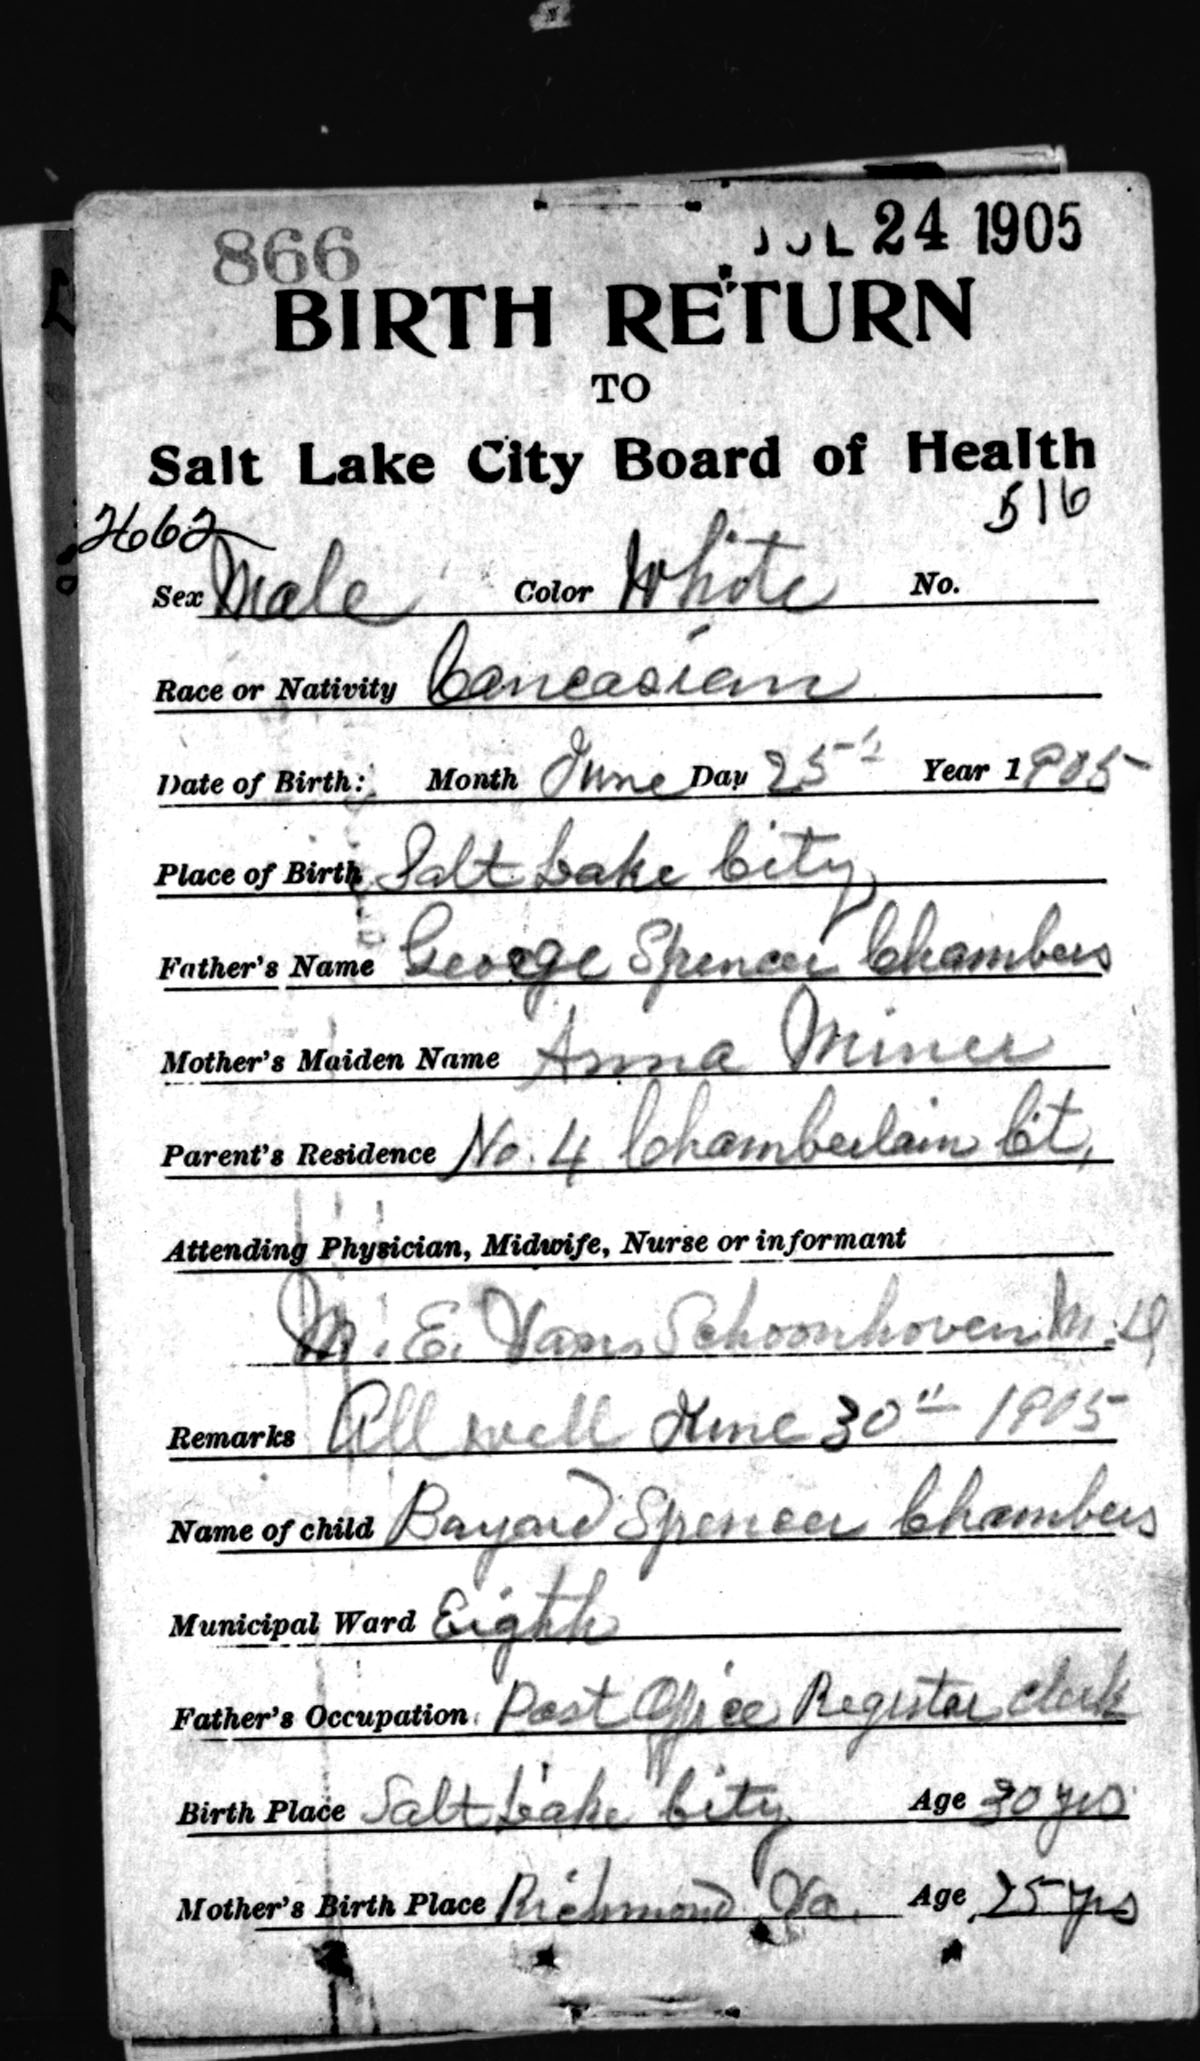 866
JUL 24 1905
BIRTH RETURN
TO
Salt Lake City Board of Health
2662
516
Sex Male Color White No.
Race or Nativity Caucasian
Date of Birth: Month June Day 25th Year 1905
Place of Birth Salt Lake City
Father's Name George Spencer Chambers
Mother's Maiden Name Anna Miner
Parent's Residence No. 4 Chamberlain Ct.
Attending Physician, Midwife, Nurse or informant
M. E. Van Schoonhoven M.D
Remarks All well June 30th 1905
Name of child Bayard Spencer Chambers
Municipal Ward Eighth
Father's Occupation Post Office Register clerk
Birth Place Salt Lake City Age 30 yrs
Mother's Birth Place Richmond Va. Age 25 yrs